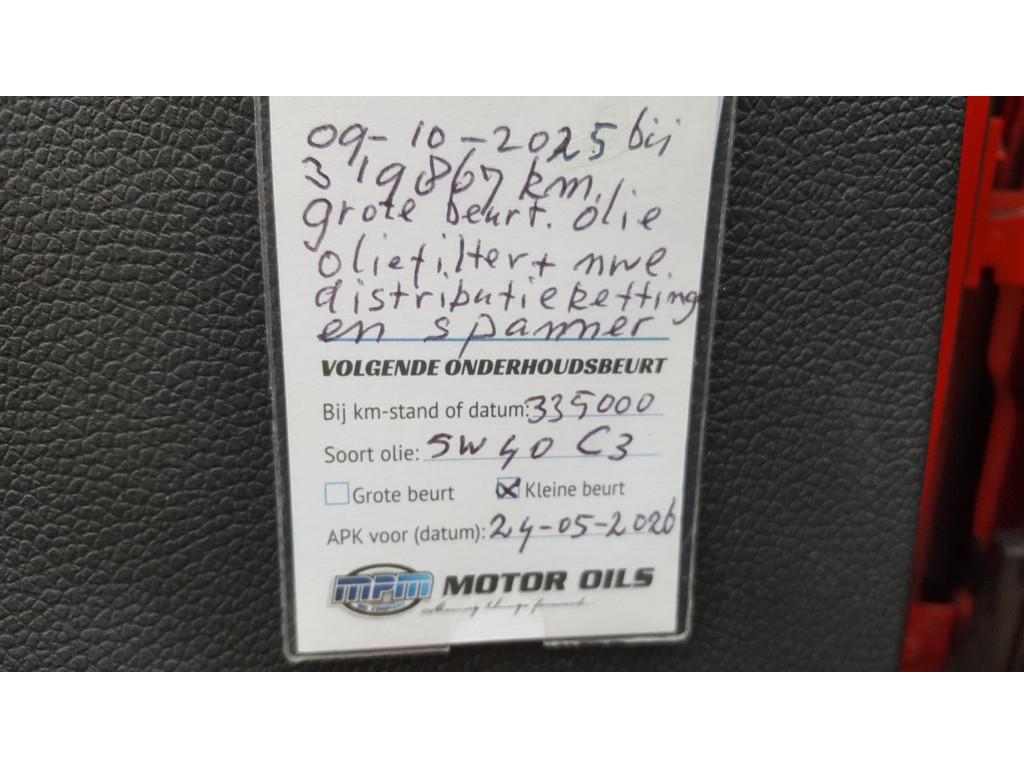 09-10-2025 bij
319867 km.
grote beurt. olie
oliefilter + nwe.
distributieketting
en spanner
VOLGENDE ONDERHOUDSBEURT
Bij km-stand of datum: 335000
Soort olie: 5W40 C3
Grote beurt Kleine beurt
APK voor (datum): 24-05-2026
MPM MOTOR OILS
OIL COMPANY